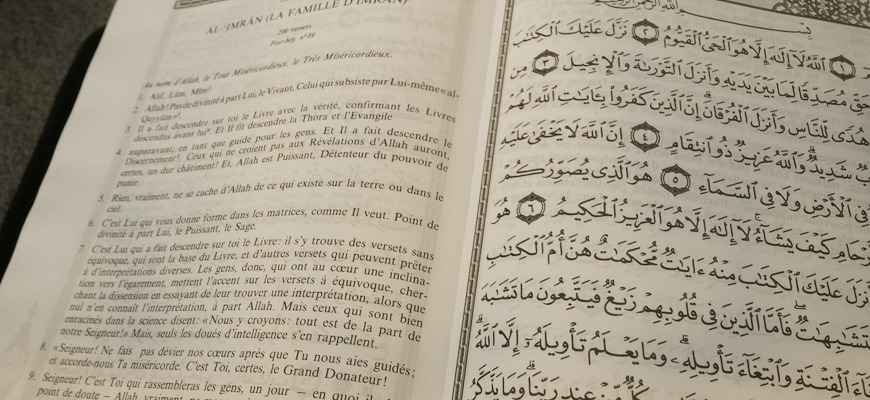 AL-'IMRAN (LA FAMILLE D'IMRAN)
200 versets
Post-hég. n°89
Au nom d'Allah, le Tout Miséricordieux, le Très Miséricordieux.
1. Alif, Lâm, Mîm
2. Allah! Pas de divinité à part Lui, le Vivant, Celui qui subsiste par Lui-même «al-
Qayyûm».
3. Il a fait descendre sur toi le Livre avec la vérité, confirmant les Livres
descendus avant lui. Et Il fit descendre la Thora et l'Evangile
4. auparavant, en tant que guide pour les gens. Et Il a fait descendre le
Discernement. Ceux qui ne croient pas aux Révélations d'Allah auront,
certes, un dur châtiment! Et, Allah est Puissant, Détenteur du pouvoir de
punir.
5. Rien, vraiment, ne se cache d'Allah de ce qui existe sur la terre ou dans le
ciel.
6. C'est Lui qui vous donne forme dans les matrices, comme Il veut. Point de
divinité à part Lui, le Puissant, le Sage.
7. C'est Lui qui a fait descendre sur toi le Livre: il s'y trouve des versets sans
équivoque, qui sont la base du Livre, et d'autres versets qui peuvent prêter
à d'interprétations diverses. Les gens, donc, qui ont au cœur une inclina-
tion vers l'égarement, mettent l'accent sur les versets à équivoque, cher-
chant la dissension en essayant de leur trouver une interprétation, alors que
nul n'en connaît l'interprétation, à part Allah. Mais ceux qui sont bien
enracinés dans la science disent: «Nous y croyons: tout est de la part de
notre Seigneur!» Mais, seuls les doués d'intelligence s'en rappellent.
8. «Seigneur! Ne fais pas dévier nos cœurs après que Tu nous aies guidés;
et accorde-nous Ta miséricorde. C'est Toi, certes, le Grand Donateur!
9. Seigneur! C'est Toi qui rassembleras les gens, un jour – en quoi il
point de doute – Allah, vraiment, ne
ٱللَّهِ ٱلرَّحْمَٰنِ ٱلرَّحِيمِ
١ ٱللَّهُ لَآ إِلَٰهَ إِلَّا هُوَ ٱلْحَىُّ ٱلْقَيُّومُ ٢ نَزَّلَ عَلَيْكَ ٱلْكِتَٰبَ
مُصَدِّقًا لِّمَا بَيْنَ يَدَيْهِ وَأَنزَلَ ٱلتَّوْرَىٰةَ وَٱلْإِنجِيلَ ٣ مِن
هُدًى لِّلنَّاسِ وَأَنزَلَ ٱلْفُرْقَانَ إِنَّ ٱلَّذِينَ كَفَرُوا۟ بِـَٔايَٰتِ ٱللَّهِ لَهُمْ
شَدِيدٌ وَٱللَّهُ عَزِيزٌ ذُو ٱنتِقَامٍ ٤ إِنَّ ٱللَّهَ لَا يَخْفَىٰ عَلَيْهِ
فِى ٱلْأَرْضِ وَلَا فِى ٱلسَّمَآءِ ٥ هُوَ ٱلَّذِى يُصَوِّرُكُمْ
كَيْفَ يَشَآءُ لَآ إِلَٰهَ إِلَّا هُوَ ٱلْعَزِيزُ ٱلْحَكِيمُ ٦ هُوَ
عَلَيْكَ ٱلْكِتَٰبَ مِنْهُ ءَايَٰتٌ مُّحْكَمَٰتٌ هُنَّ أُمُّ ٱلْكِتَٰبِ
فَأَمَّا ٱلَّذِينَ فِى قُلُوبِهِمْ زَيْغٌ فَيَتَّبِعُونَ مَا تَشَٰبَهَ
ٱلْفِتْنَةِ وَٱبْتِغَآءَ تَأْوِيلِهِۦ وَمَا يَعْلَمُ تَأْوِيلَهُۥٓ إِلَّا ٱللَّهُ
كُلٌّ مِّنْ عِندِ رَبِّنَا وَمَا يَذَّكَّرُ